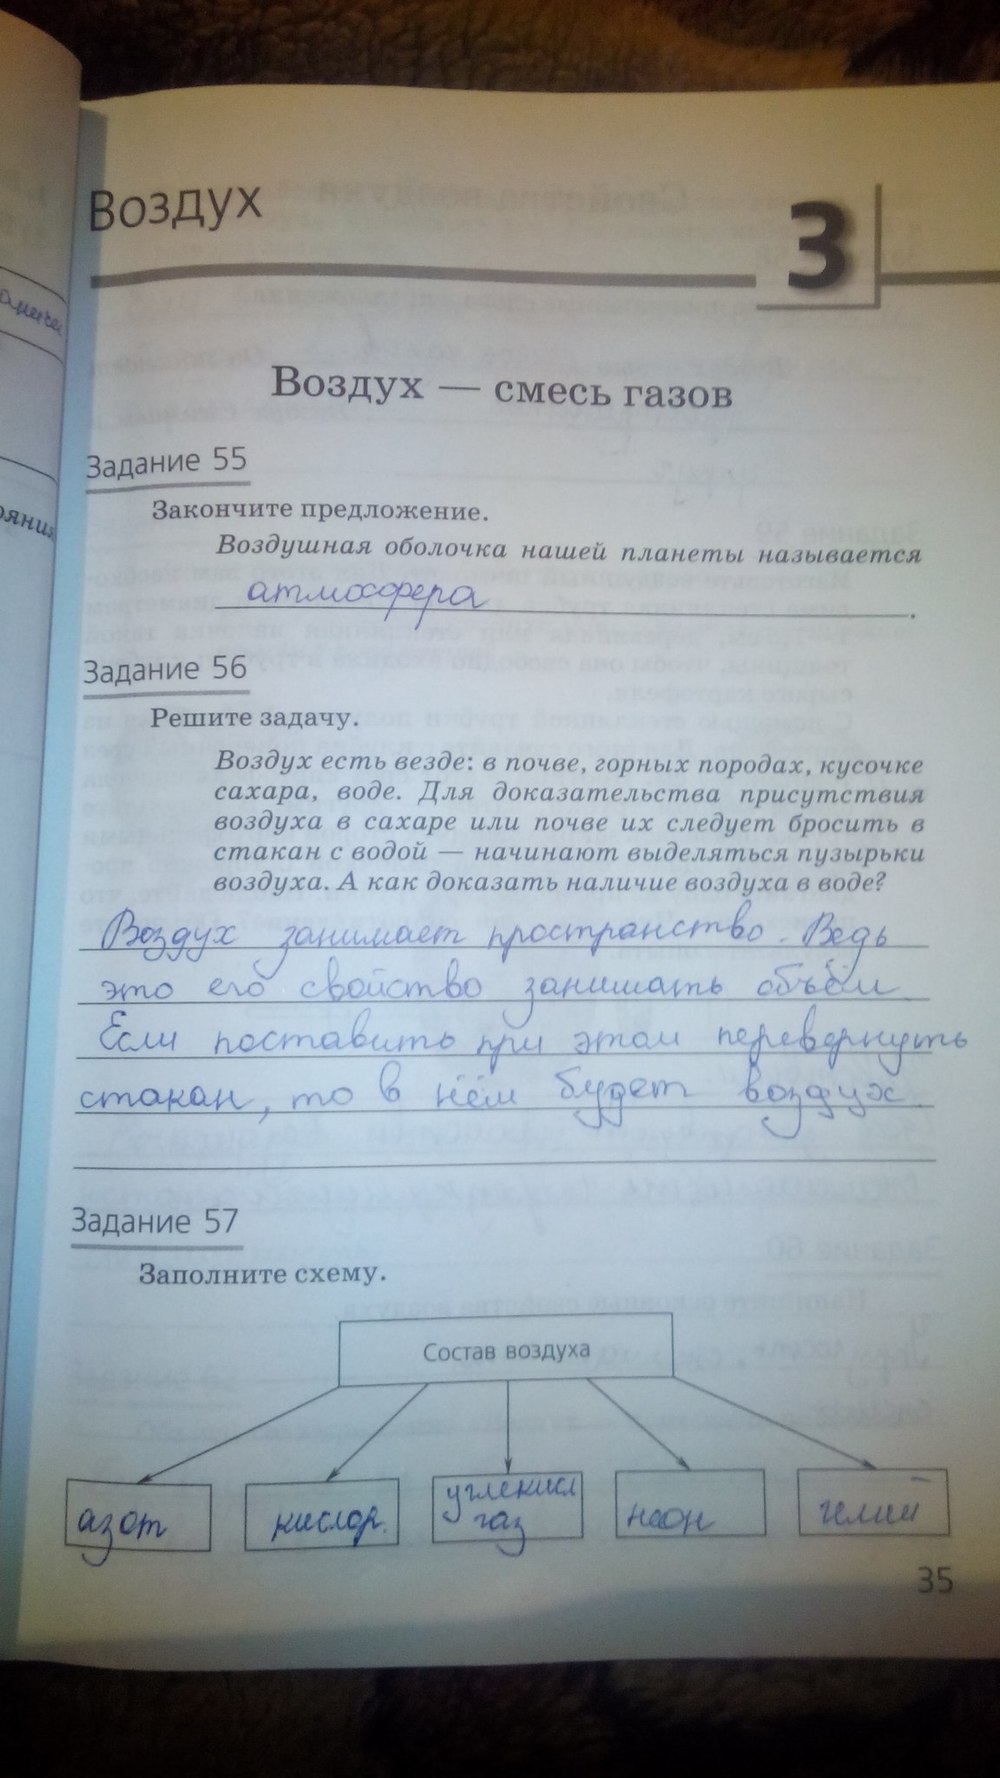 Воздух
3
Воздух — смесь газов
Задание 55
Закончите предложение.
Воздушная оболочка нашей планеты называется
атмосфера.
Задание 56
Решите задачу.
Воздух есть везде: в почве, горных породах, кусочке
сахара, воде. Для доказательства присутствия
воздуха в сахаре или почве их следует бросить в
стакан с водой — начинают выделяться пузырьки
воздуха. А как доказать наличие воздуха в воде?
Воздух занимает пространство. Ведь
это его свойство занимать объём
Если поставить при этом перевернуть
стакан, то в нём будет воздух.
Задание 57
Заполните схему.
Состав воздуха
азот кислор. углекисл газ неон гелий
35